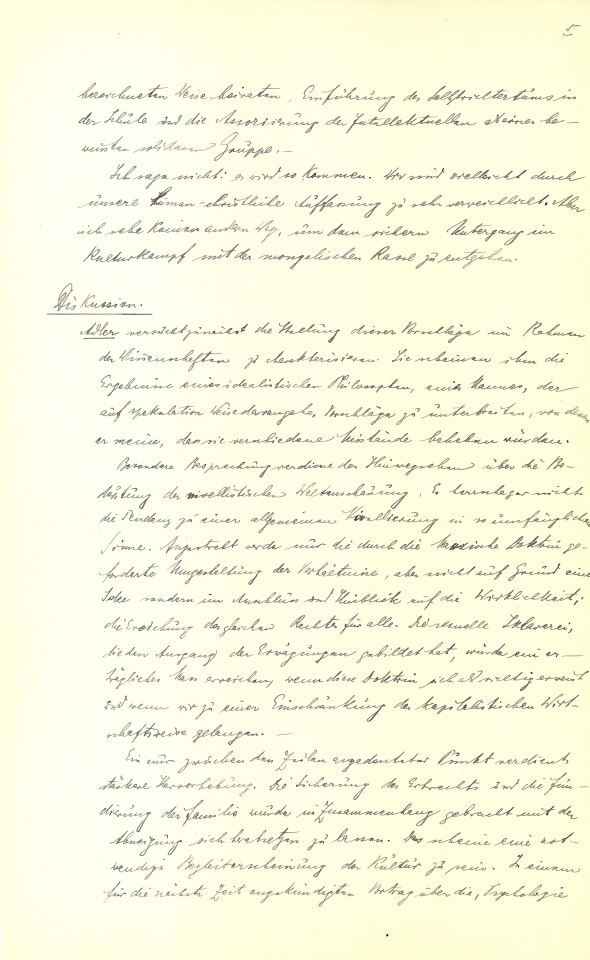 5
bezeichneten Weise heiraten, Einführung des Selbstrichtertums in
der Schule und die Amorsierung der Intellektuellen zu einer be-
wussten solidaren Gruppe. –
Ich sage nicht: es wird so kommen. Wir sind vielleicht durch
unsere human-christliche Auffassung zu sehr verweichlicht. Aber
ich sehe keinen andern Weg, um dem sichern Untergang im
Kulturkampf mit der mongolischen Rasse zu entgehen.
Diskussion.
Adler versucht zunächst die Stellung dieser Vorschläge im Rahmen
der Wissenschaften zu charakterisieren. Sie scheinen ihm die
Ergebnisse eines idealistischen Philosophen, eines Mannes, der
auf spekulative Weise darangehe, Vorschläge zu unterbreiten, von denen
er meine, dass sie verschiedene Misstände beheben würden.
Besondere Besprechung verdiene das Hinwegsehen über die Be-
deutung der nivellistischen Weltanschauung. Es herrsche gar nicht
die Tendenz zu einer allgemeinen Nivellierung in so umfänglichem
Sinne. Angestrebt werde nur die durch die Marxische Doktrin ge-
forderte Umgestaltung der Verhältnisse, aber nicht auf Grund einer
Idee sondern im Anschluss und Hinblick auf die Wirklichkeit;
die Erreichung der gleichen Rechte für alle. Die sexuelle Sklaverei,
die den Ausgang der Erwägungen gebildet hat, würde ein er-
trägliches Mass erreichen, wenn diese Doktrin sich als richtig erweist
und wenn wir zu einer Einschränkung der kapitalistischen Wirt-
schaftsweise gelangen. –
Ein nur zwischen den Zeilen angedeuteter Punkt verdient
stärkere Hervorhebung. Die Sicherung des Erbrechts und die Fun-
dierung der Familie würde in Zusammenhang gebracht mit der
Abneigung sich fortsetzen zu lassen. Das scheine eine not-
wendige Begleiterscheinung der Kultur zu sein. In einem
für die nächste Zeit angekündigten Vortrag über die „Psychologie